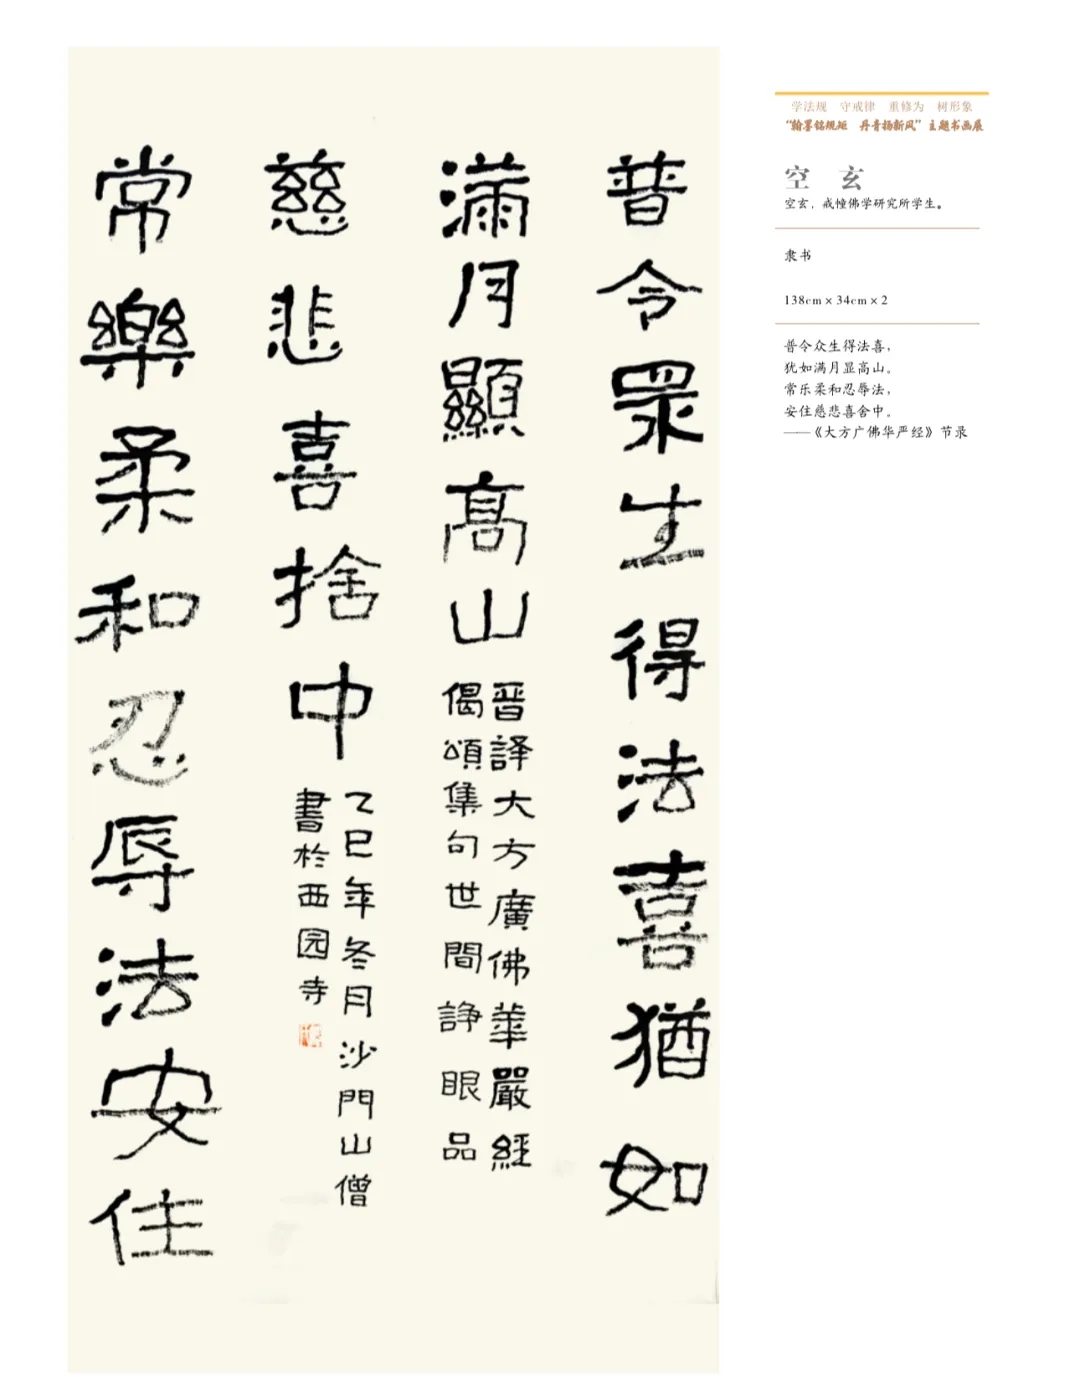 普令眾生得法喜猶如
滿月顯高山
晉譯大方廣佛華嚴經
偈頌集句世間諍眼品
常樂柔和忍辱法安住
慈悲喜捨中
乙巳年冬月沙門山僧
書於西园寺
学法规 守戒律 重修为 树形象
“翰墨铭规矩 丹青扬新风”主题书画展
空 玄
空玄，戒幢佛学研究所学生。
隶书
138cm × 34cm × 2
普令众生得法喜，
犹如满月显高山。
常乐柔和忍辱法，
安住慈悲喜舍中。
——《大方广佛华严经》节录